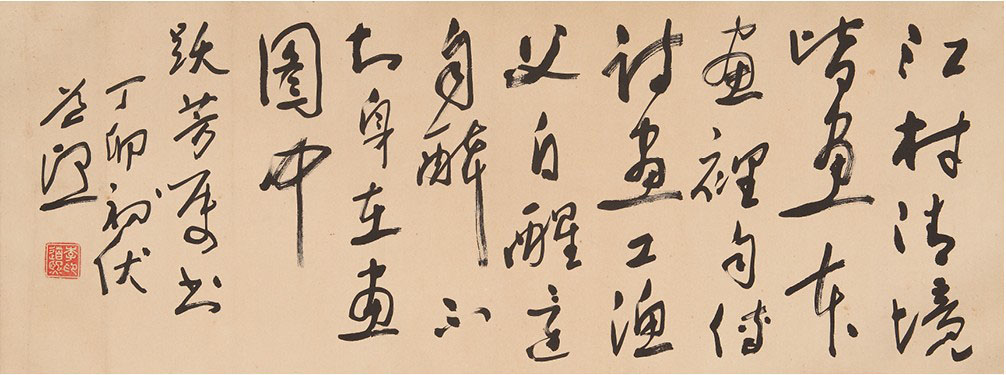 江村清境
皆畫本
畫裡句傳
詩畫工漁
父自醒還
自醉不
知身在畫
圖中
跃芳属书
丁卯初伏
道熙